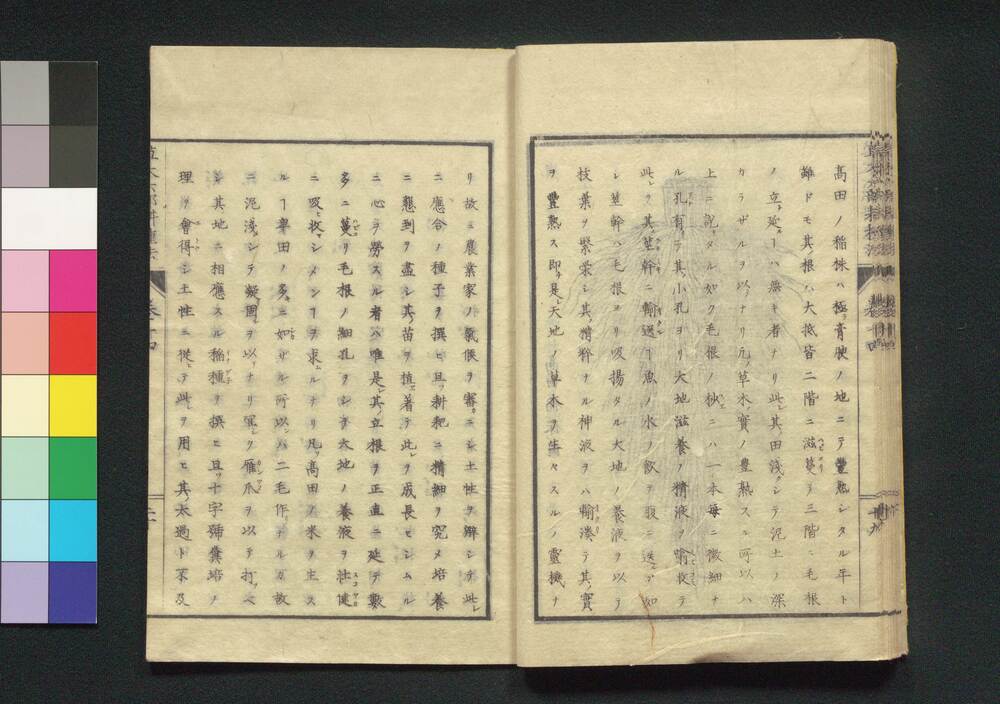 高田ノ稲株ハ極膏腴ノ地ニテ豊熟シタル年ト
雖ドモ其根ハ大抵皆二階ニ滋蔓リ三階ニ毛根
ノ立延ルーハ無キ者ナリ此レ其田浅クシテ泥土ノ深
カラザルヲ以ナリ凡草木ノ實ノ豊熟スル所以ハ
上ニ説タル如ク毛根ノ杪ニハ一本毎ニ微細ナ
ル孔有リテ其小孔ヨリ大地滋養ノ精液ヲ噏收テ
此レヲ其莖幹ニ輸送ルー魚ノ水ノ飲テ腹ニ送ルガ如
シ莖幹ハ毛根ヨリ吸揚タル大地ノ養液ヲ以テ
枝葉ヲ繁栄シ其精粹ナル神液ヲハ輸湊テ其實
ヲ豊熟ス即是レ天地ノ草木ヲ生々スルノ靈機ナ
リ故ニ農業家ノ氣候ヲ審ニシ土性ヲ辨シテ此レ
ニ應合ノ種子ヲ撰ヒ且耕耘ニ精細ヲ究メ培養
ニ懇到ヲ盡シ其苗ヲ植著テ此レヲ成長セシムル
ニ心ヲ勞スル者ハ唯是レ其立根ヲ正直ニ延テ數
多ニ蔓リ毛根ノ細孔ヲシテ大地ノ養液ヲ壮健
ニ吸收シメンーヲ求ムルナリ凡高田ノ米ヲ生ス
ルー卑田ノ多キニ如ザル所以ハ二毛作ナルガ故
ニ泥浅シテ凝固ヲ以ナリ冝ク雁爪ヲ以テ打ベ
シ其地ニ相應スル稲種ヲ撰ヒ且十字號糞培ノ
理ヲ會得シ土性ニ從テ此レヲ用ヒ其太過ト不及